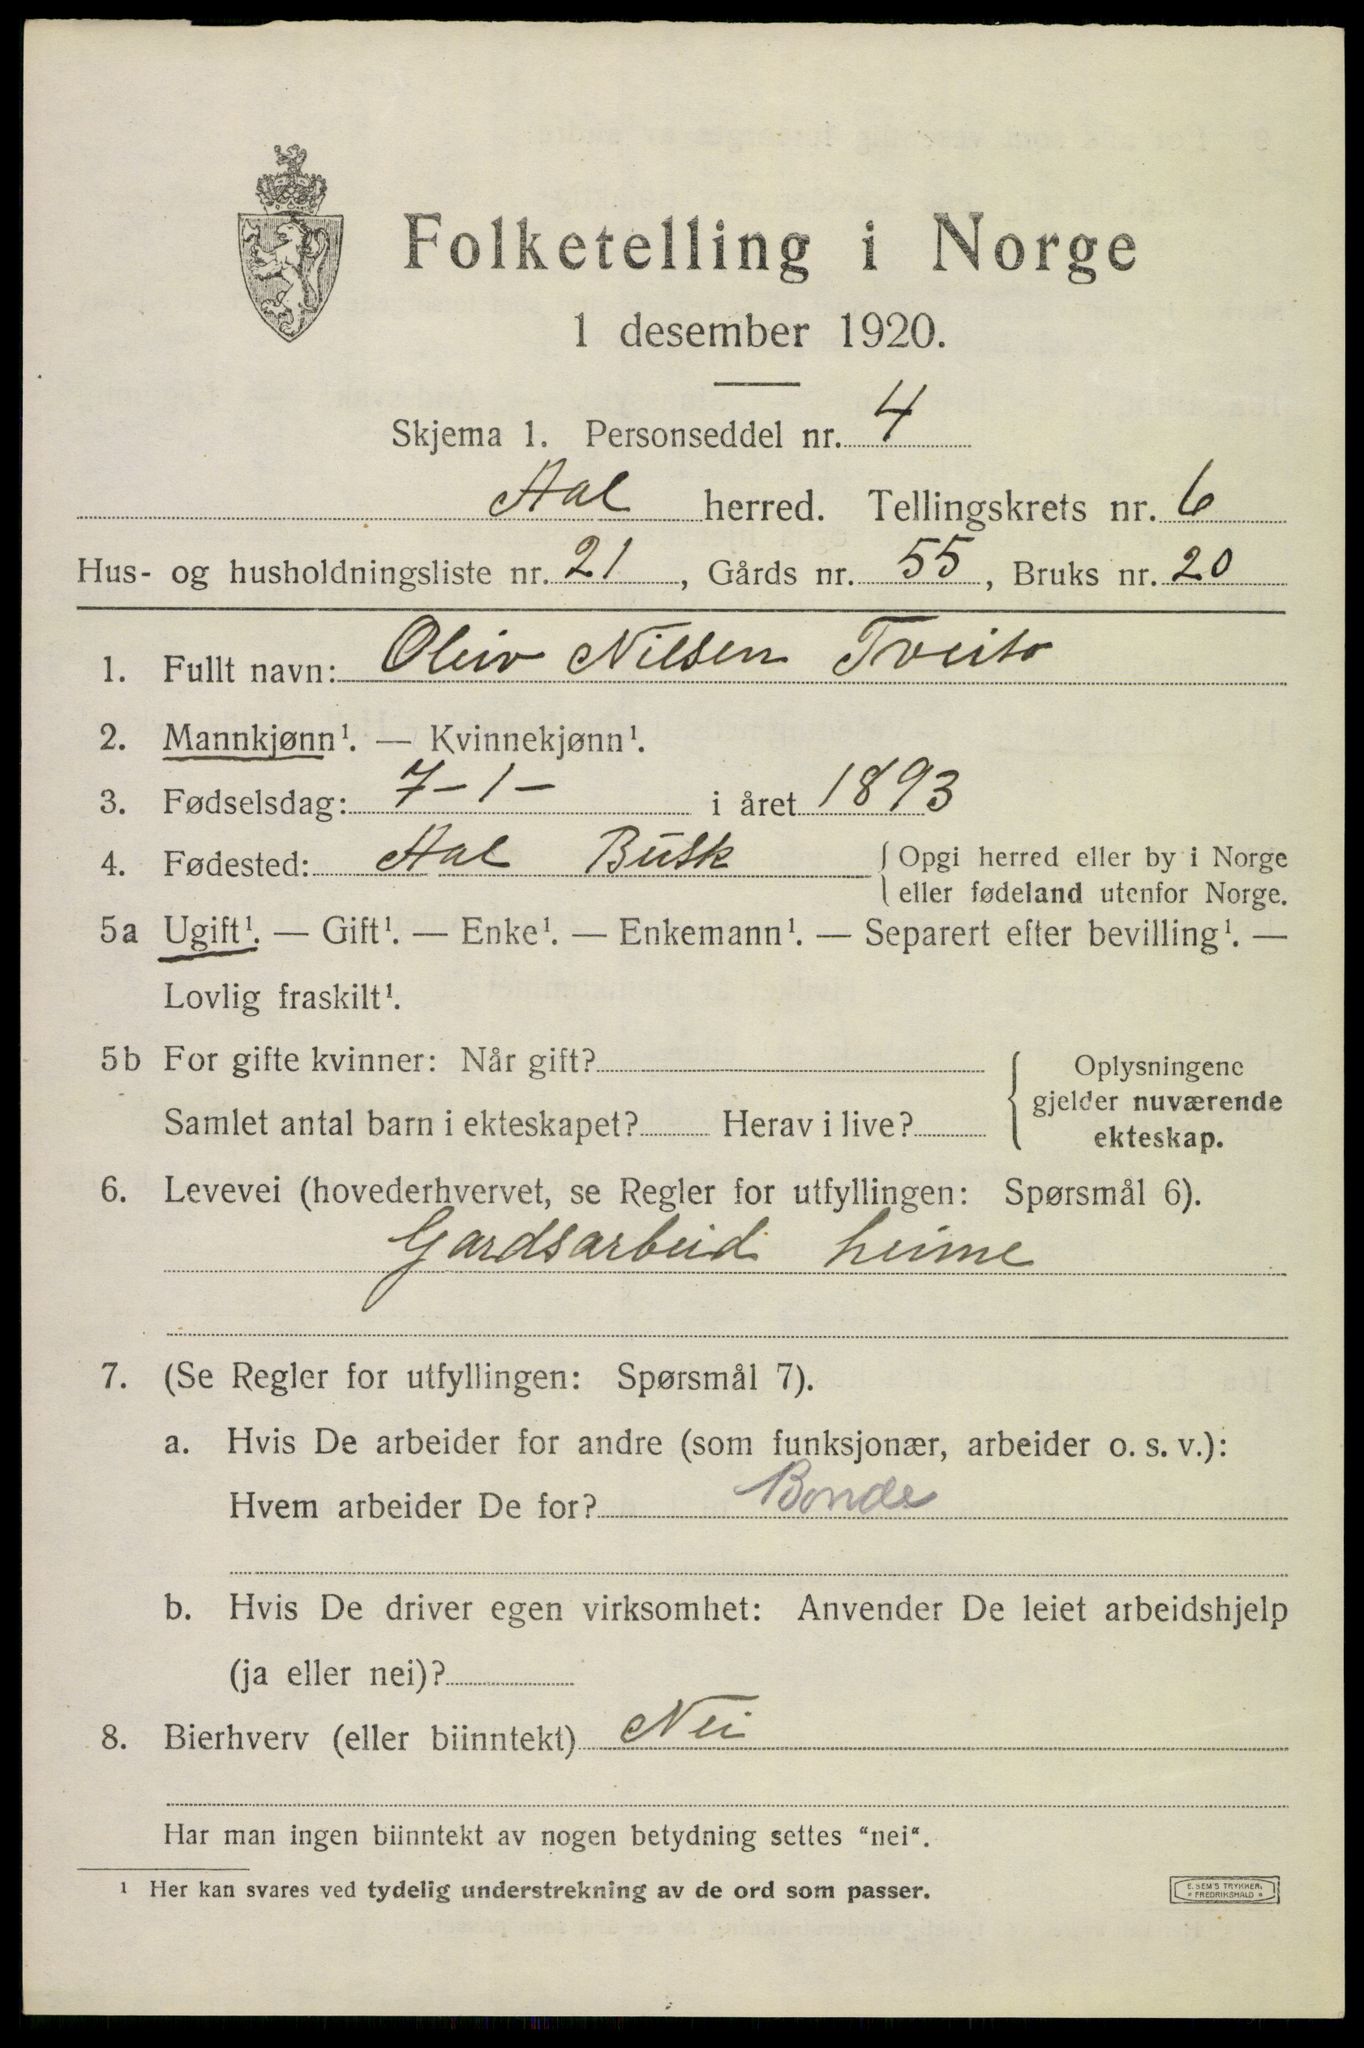 Folketelling i Norge
1 desember 1920.
Skjema 1. Personseddel nr. 4
Aal herred. Tellingskrets nr. 6
Hus- og husholdningsliste nr. 21, Gårds nr. 55, Bruks nr. 20
1. Fullt navn: Oleiv Nilsen Tveito
2. Mannkjønn¹. — Kvinnekjønn¹.
3. Fødselsdag: 7-1- i året 1893
4. Fødested: Aal Busk { Opgi herred eller by i Norge
eller fødeland utenfor Norge.
5a Ugift¹. — Gift¹. — Enke¹. — Enkemann¹. — Separert efter bevilling¹. —
Lovlig fraskilt¹.
5b For gifte kvinner: Når gift?
Samlet antal barn i ekteskapet? Herav i live?
{ Oplysningene
gjelder nuværende
ekteskap.
6. Levevei (hovederhvervet, se Regler for utfyllingen: Spørsmål 6).
Gardsarbeid heime
7. (Se Regler for utfyllingen: Spørsmål 7).
a. Hvis De arbeider for andre (som funksjonær, arbeider o. s. v.):
Hvem arbeider De for? Bonde
b. Hvis De driver egen virksomhet: Anvender De leiet arbeidshjelp
(ja eller nei)?
8. Bierhverv (eller biinntekt) Nei
Har man ingen biinntekt av nogen betydning settes "nei".
¹ Her kan svares ved tydelig understrekning av de ord som passer.
E. SEM'S TRYKKERI
FREDRIKSHALD